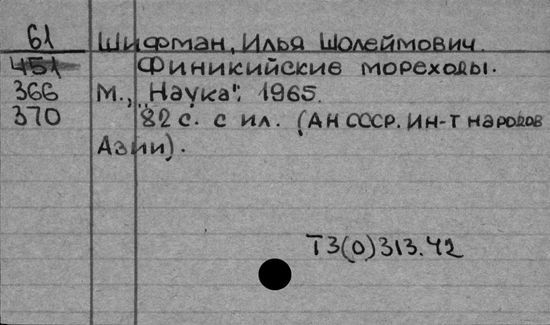 61 Шифман, Илья Шолеймович.
451 Финикийские мореходы.
366 М., „Наука", 1965.
370 82 с. с ил. (АН СССР. Ин-т народов
Азии).
Т3(0)313.42